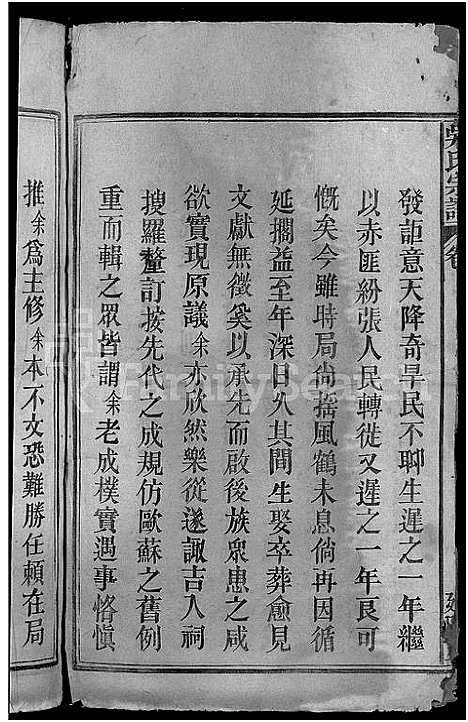 吳氏宗譜
卷
發詎意天降奇旱民不聊生遲之一年繼
以赤匪紛張人民轉徙又遲之一年良可
慨矣今雖時局尚搖風鶴未息倘再因循
延擱益至年深日久其間生娶卒葬愈見
文獻無徵奚以承先而啟後族眾患之咸
欲實現原議余亦欣然樂從遂諏吉入祠
搜羅釐訂按先代之成規仿歐蘇之舊例
重而輯之眾皆謂余老成樸實遇事恪慎
推余為主修余本不文恐難勝任賴在局
FamilySearch